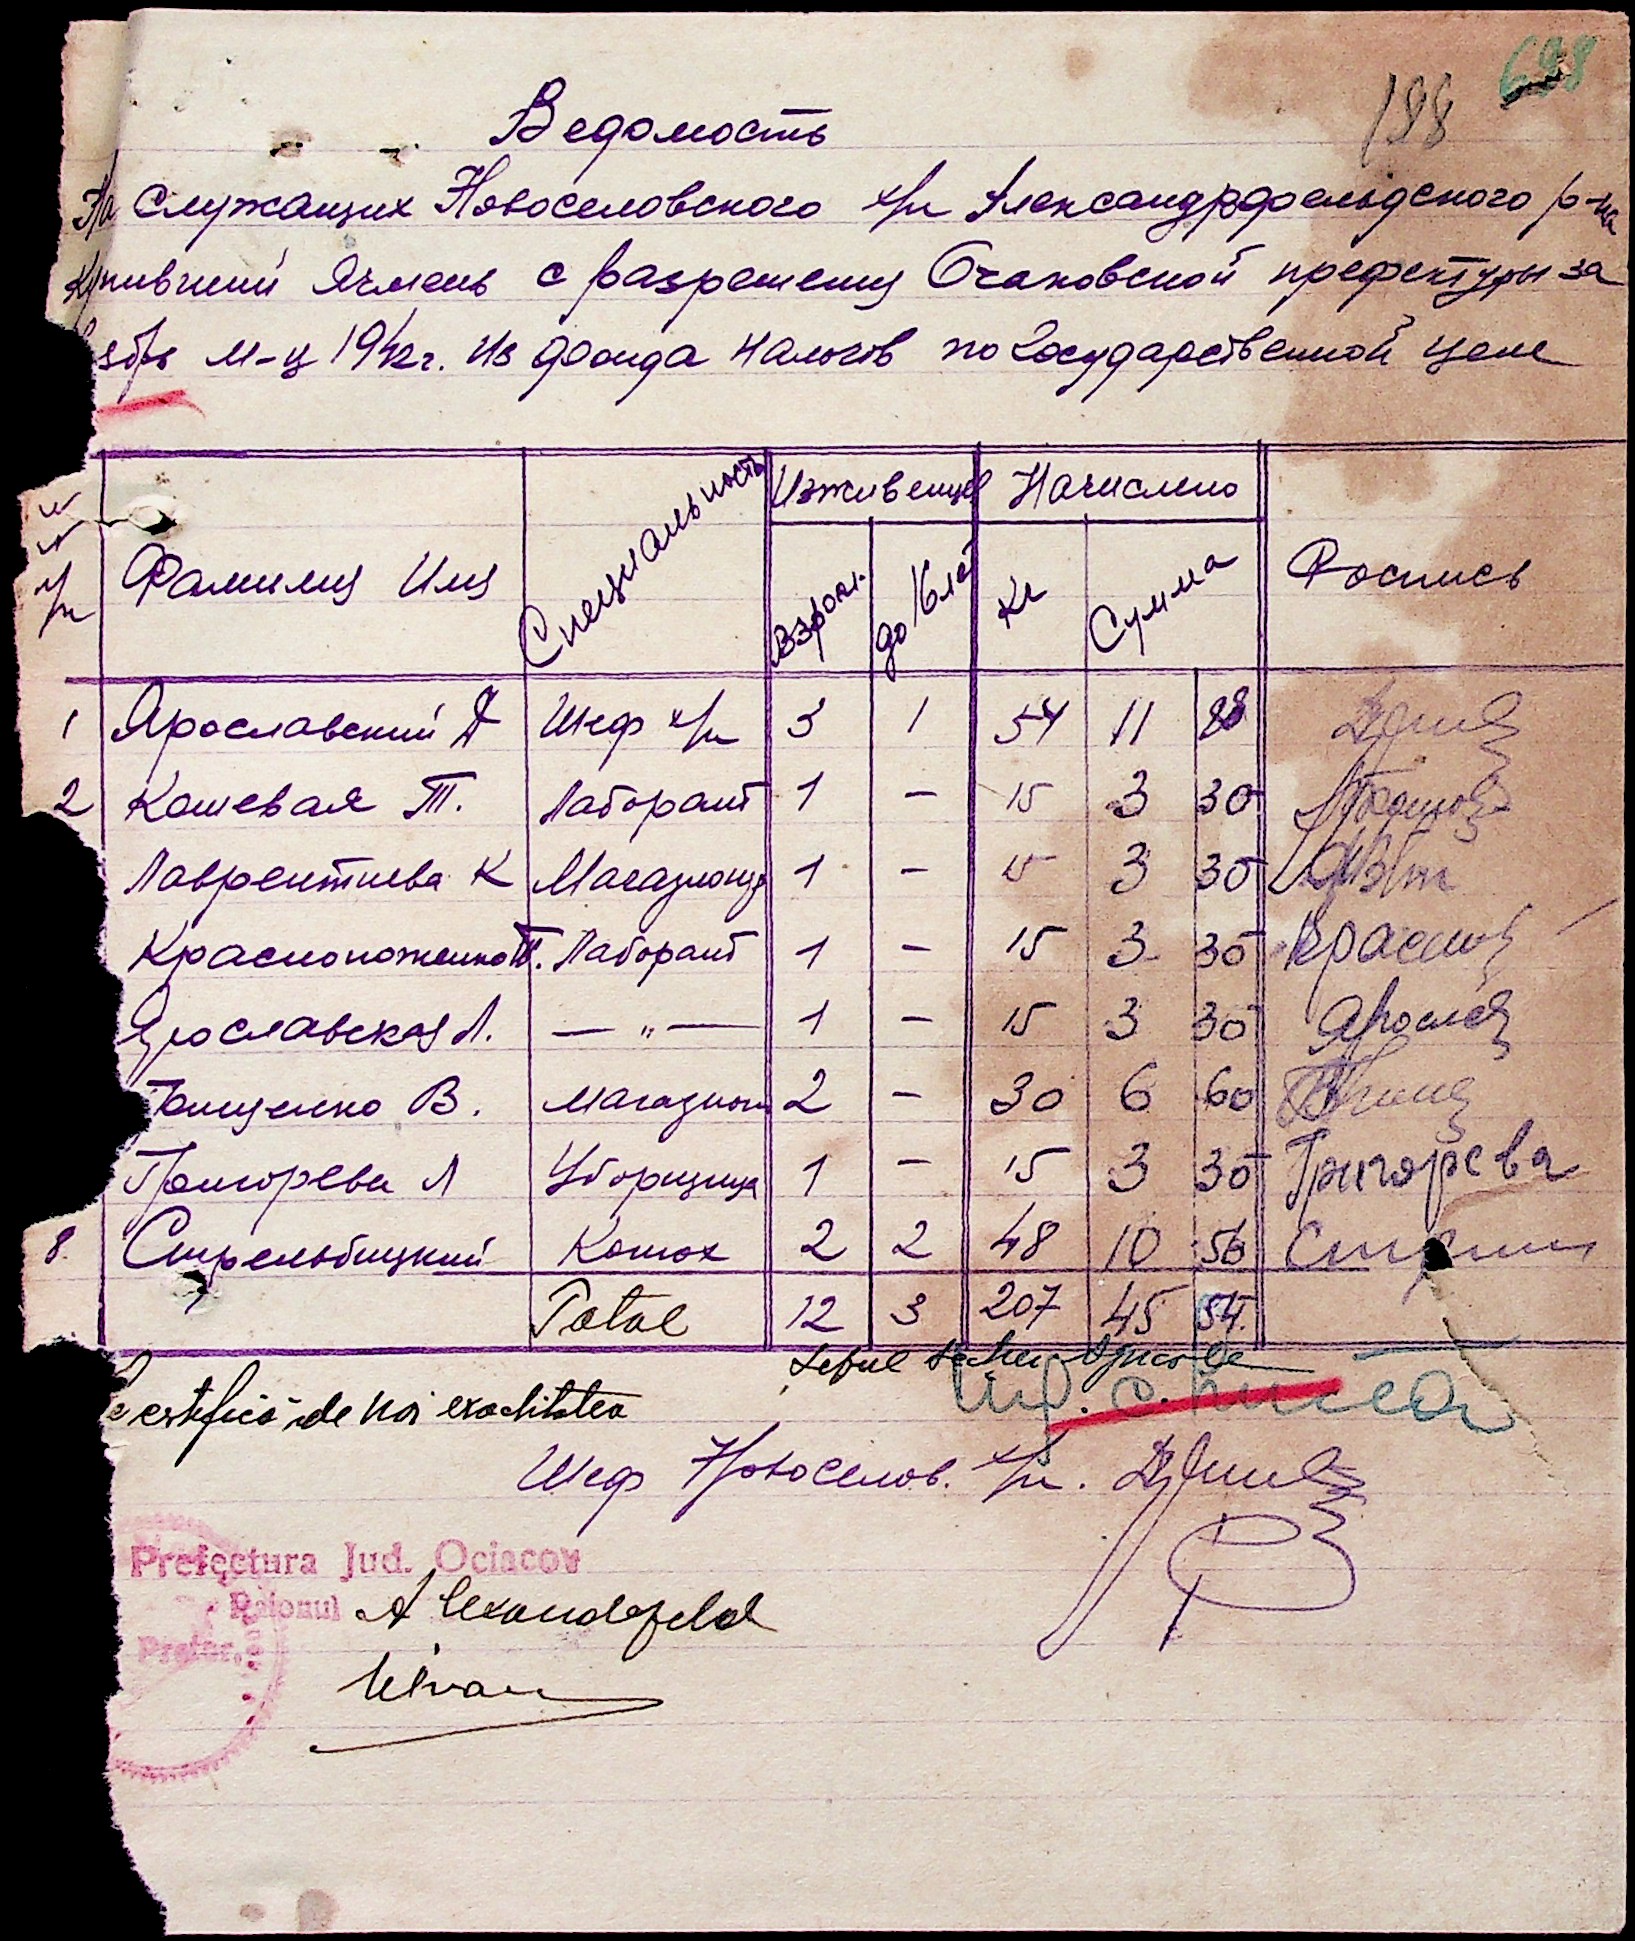 698
188
Ведомость
На служащих Новоселовского х/п Александрфельдского р-на
Купивший Ячмень с разрешения Очаковской префектуры за
м-ц 1942г. Из фонда налогов по Государственной цене
Фамилия Имя Специальность Иживенцев Начислено Роспись
Взросл. до 16 лет Кг Сумма
1 Ярославский Шеф х/п 3 1 54 11 88
2 Кошевая Т. Лаборант 1 — 15 3 30
Лаврентиева К Магазионер 1 — 15 3 30
Красноноженко Т. Лаборант 1 — 15 3 30 Краснон
Ярославская Л. — " — 1 — 15 3 30 Яросла
В. магазион 2 — 30 6 60
Григорева Л Уборщица 1 — 15 3 30 Григорева
8. Стрельбицкий Конюх 2 2 48 10 56
Total 12 3 207 45 54.
Șeful
certifică de noi exactitatea
Шеф Новоселов. х/п.
Prefectura Jud. Ociacov
Raionul Alexandrfeld
Pretur